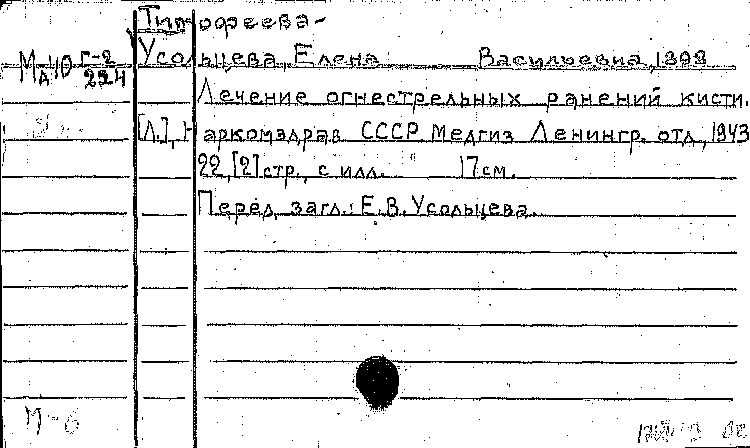 Тимофеева-
Усольцева, Елена Васильевна, 1898
Мд40 Г-2
224
Лечение огнестрельных ранений кисти.
[Л.], Наркомздрав СССР Медгиз Ленингр. отд., 1943
22, [2] стр., с илл. 17 см.
Перед загл.: Е.В. Усольцева.
М-6